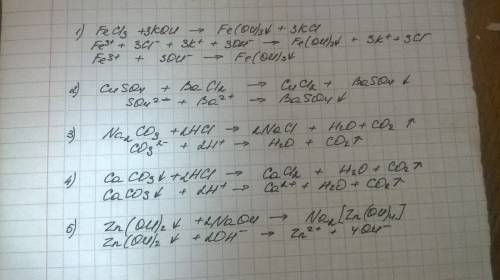 1) FeCl3 + 3KOH → Fe(OH)3↓ + 3KCl
Fe3+ + 3Cl- + 3K+ + 3OH- → Fe(OH)3↓ + 3K+ + 3Cl-
Fe3+ + 3OH- → Fe(OH)3↓
2) CuSO4 + BaCl2 → CuCl2 + BaSO4 ↓
SO4 2- + Ba2+ → BaSO4 ↓
3) Na2CO3 + 2HCl → 2NaCl + H2O + CO2 ↑
CO3 2- + 2H+ → H2O + CO2↑
4) CaCO3↓ + 2HCl → CaCl2 + H2O + CO2↑
CaCO3↓ + 2H+ → Ca2+ + H2O + CO2↑
5) Zn(OH)2 ↓ + 2NaOH → Na2[Zn(OH)4]
Zn(OH)2 ↓ + 2OH- → Zn2+ + 4OH-